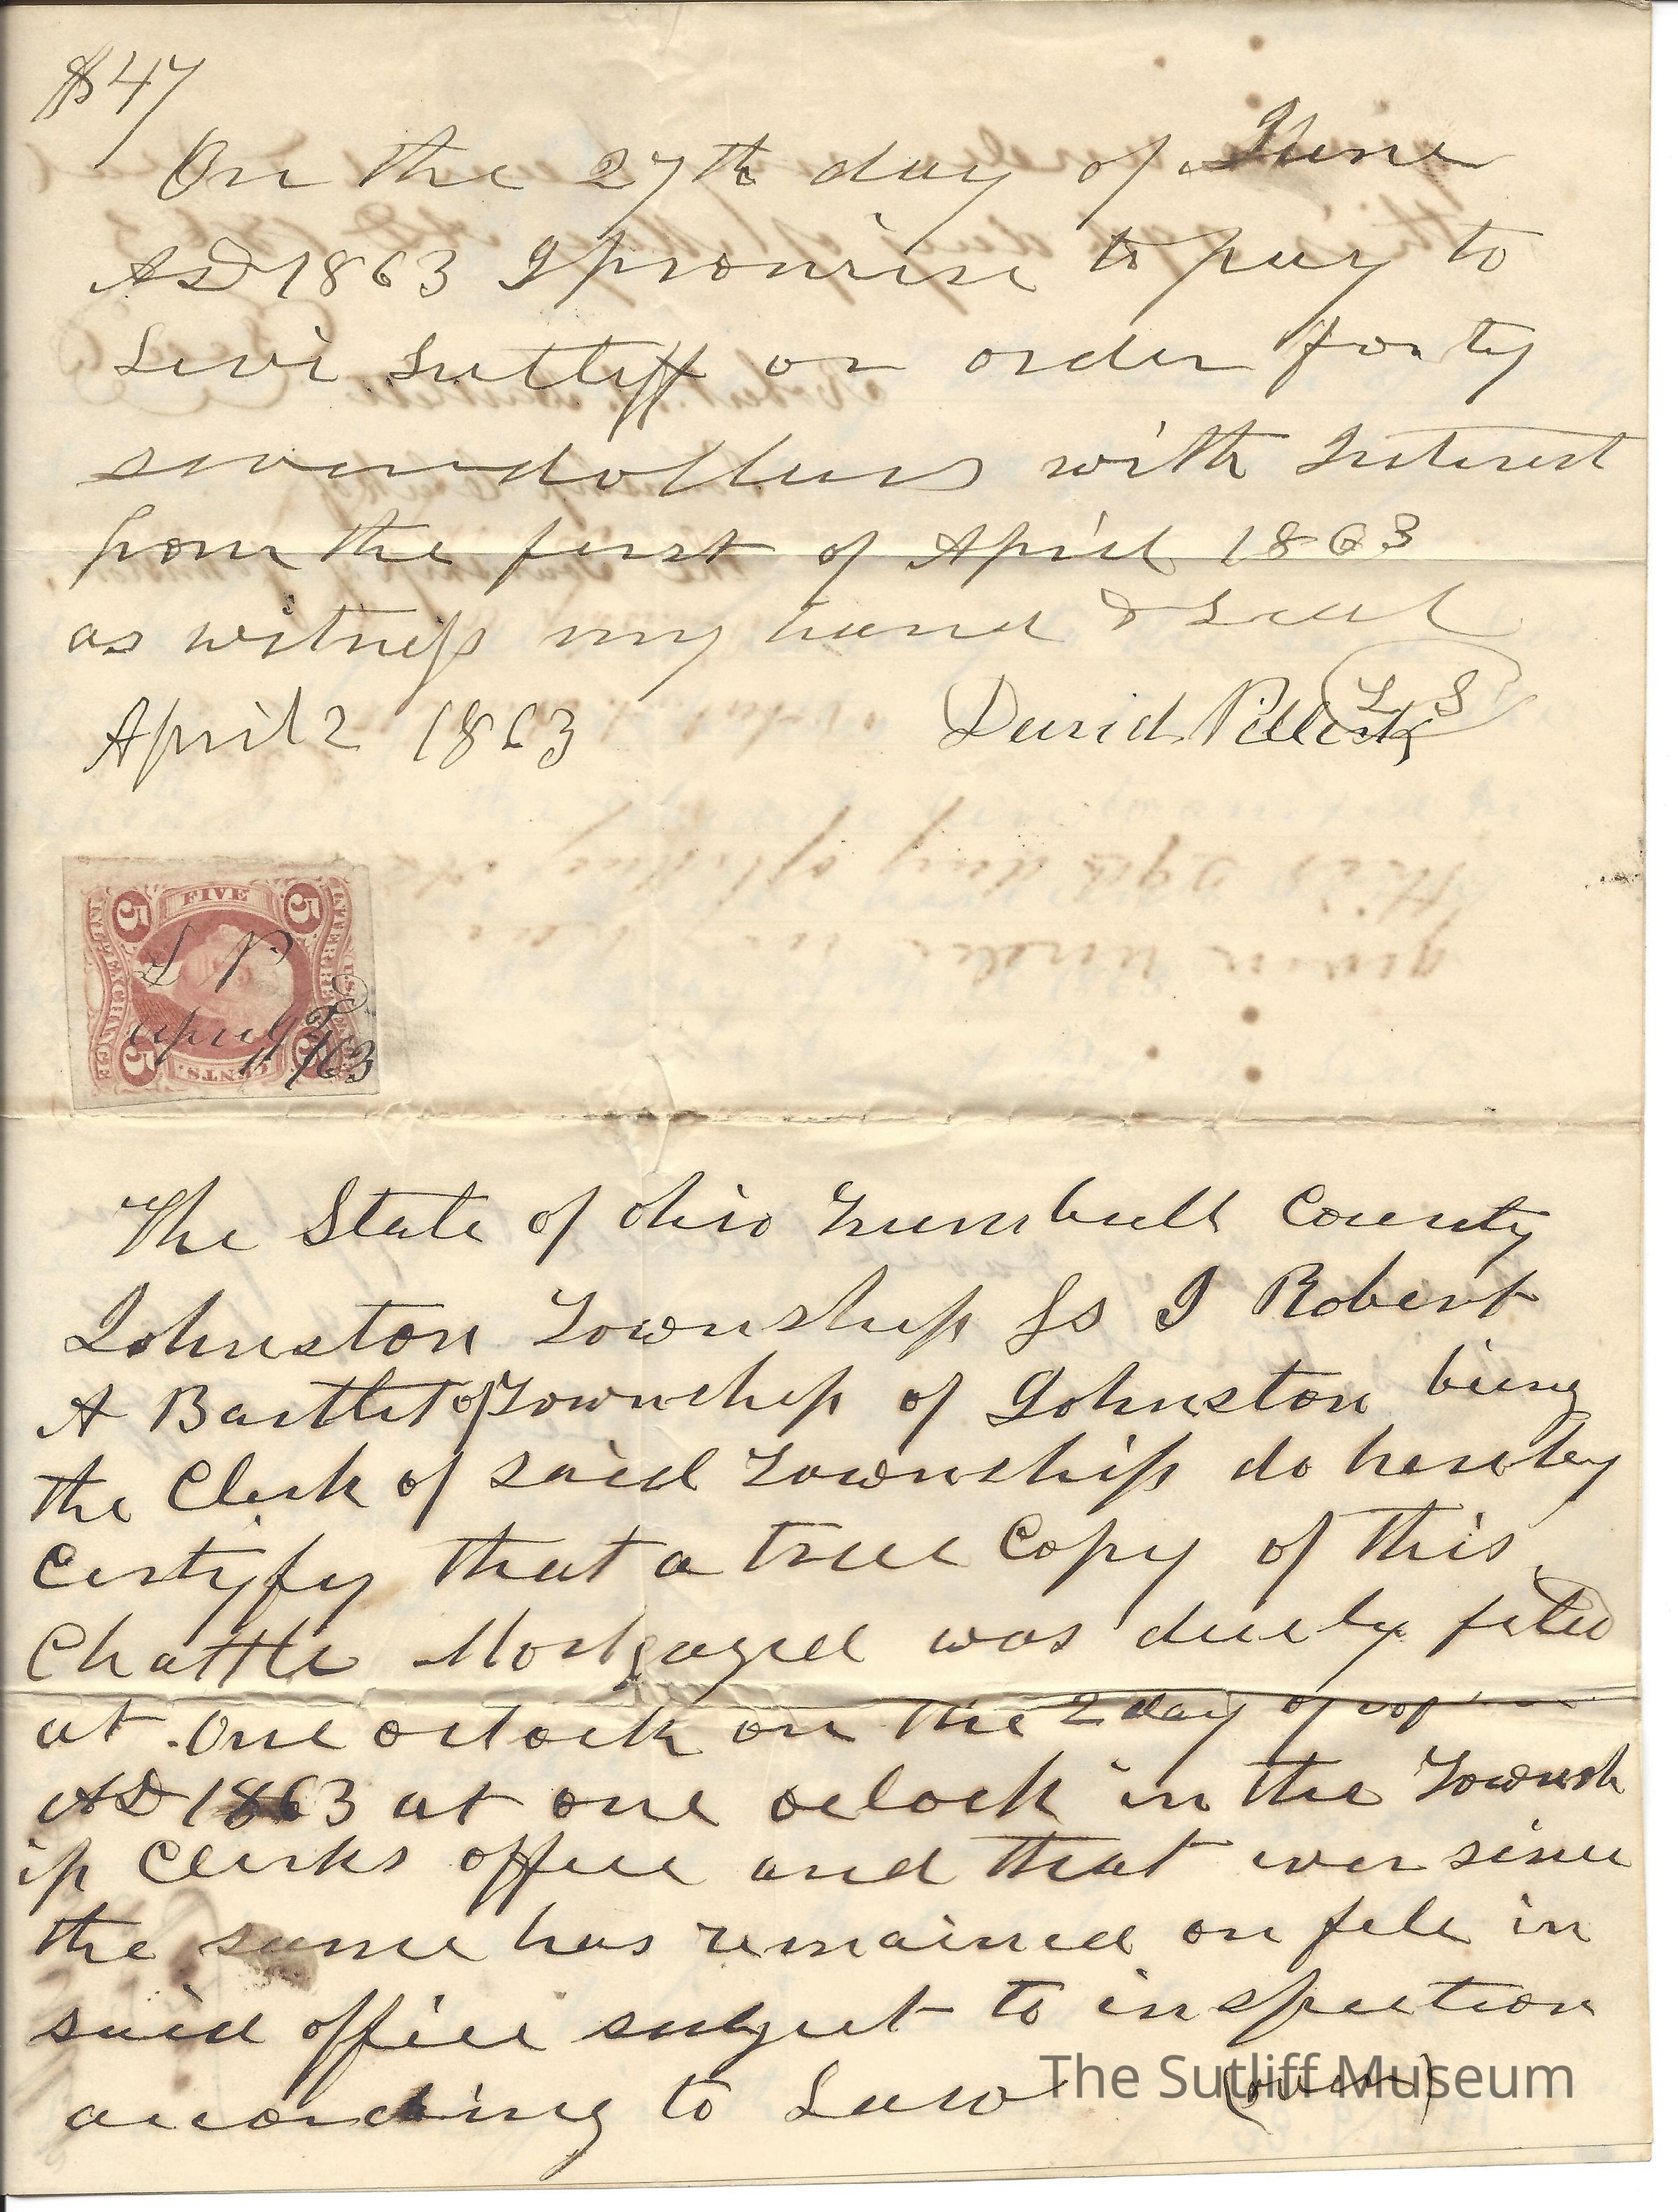 $47
On the 27th day of June
AD 1863 I promise to pay to
Levi Sutliff or order forty
seven dollars with Interest
from the first of April 1863
as witness my hand & Seal
April 2 1863 David L S
FIVE
5 5
INTER. EXCHANGE
U.S. INTER. REV.
5 CENTS. 5
April 2
1863
The State of Ohio Trumbull County
Johnston Township Ss I Robert
A Bartlet of Township of Johnston being
the Clerk of said Township do hereby
Certyfy that a true Copy of this
Chattle Mortgaged was duely filed
at One oclock on the 2 day of
AD 1863 at one oclock in the Townsh
ip Clerks office and that ever since
the same has remained on file in
said office subject to inspection
according to Law (over)
The Sutliff Museum